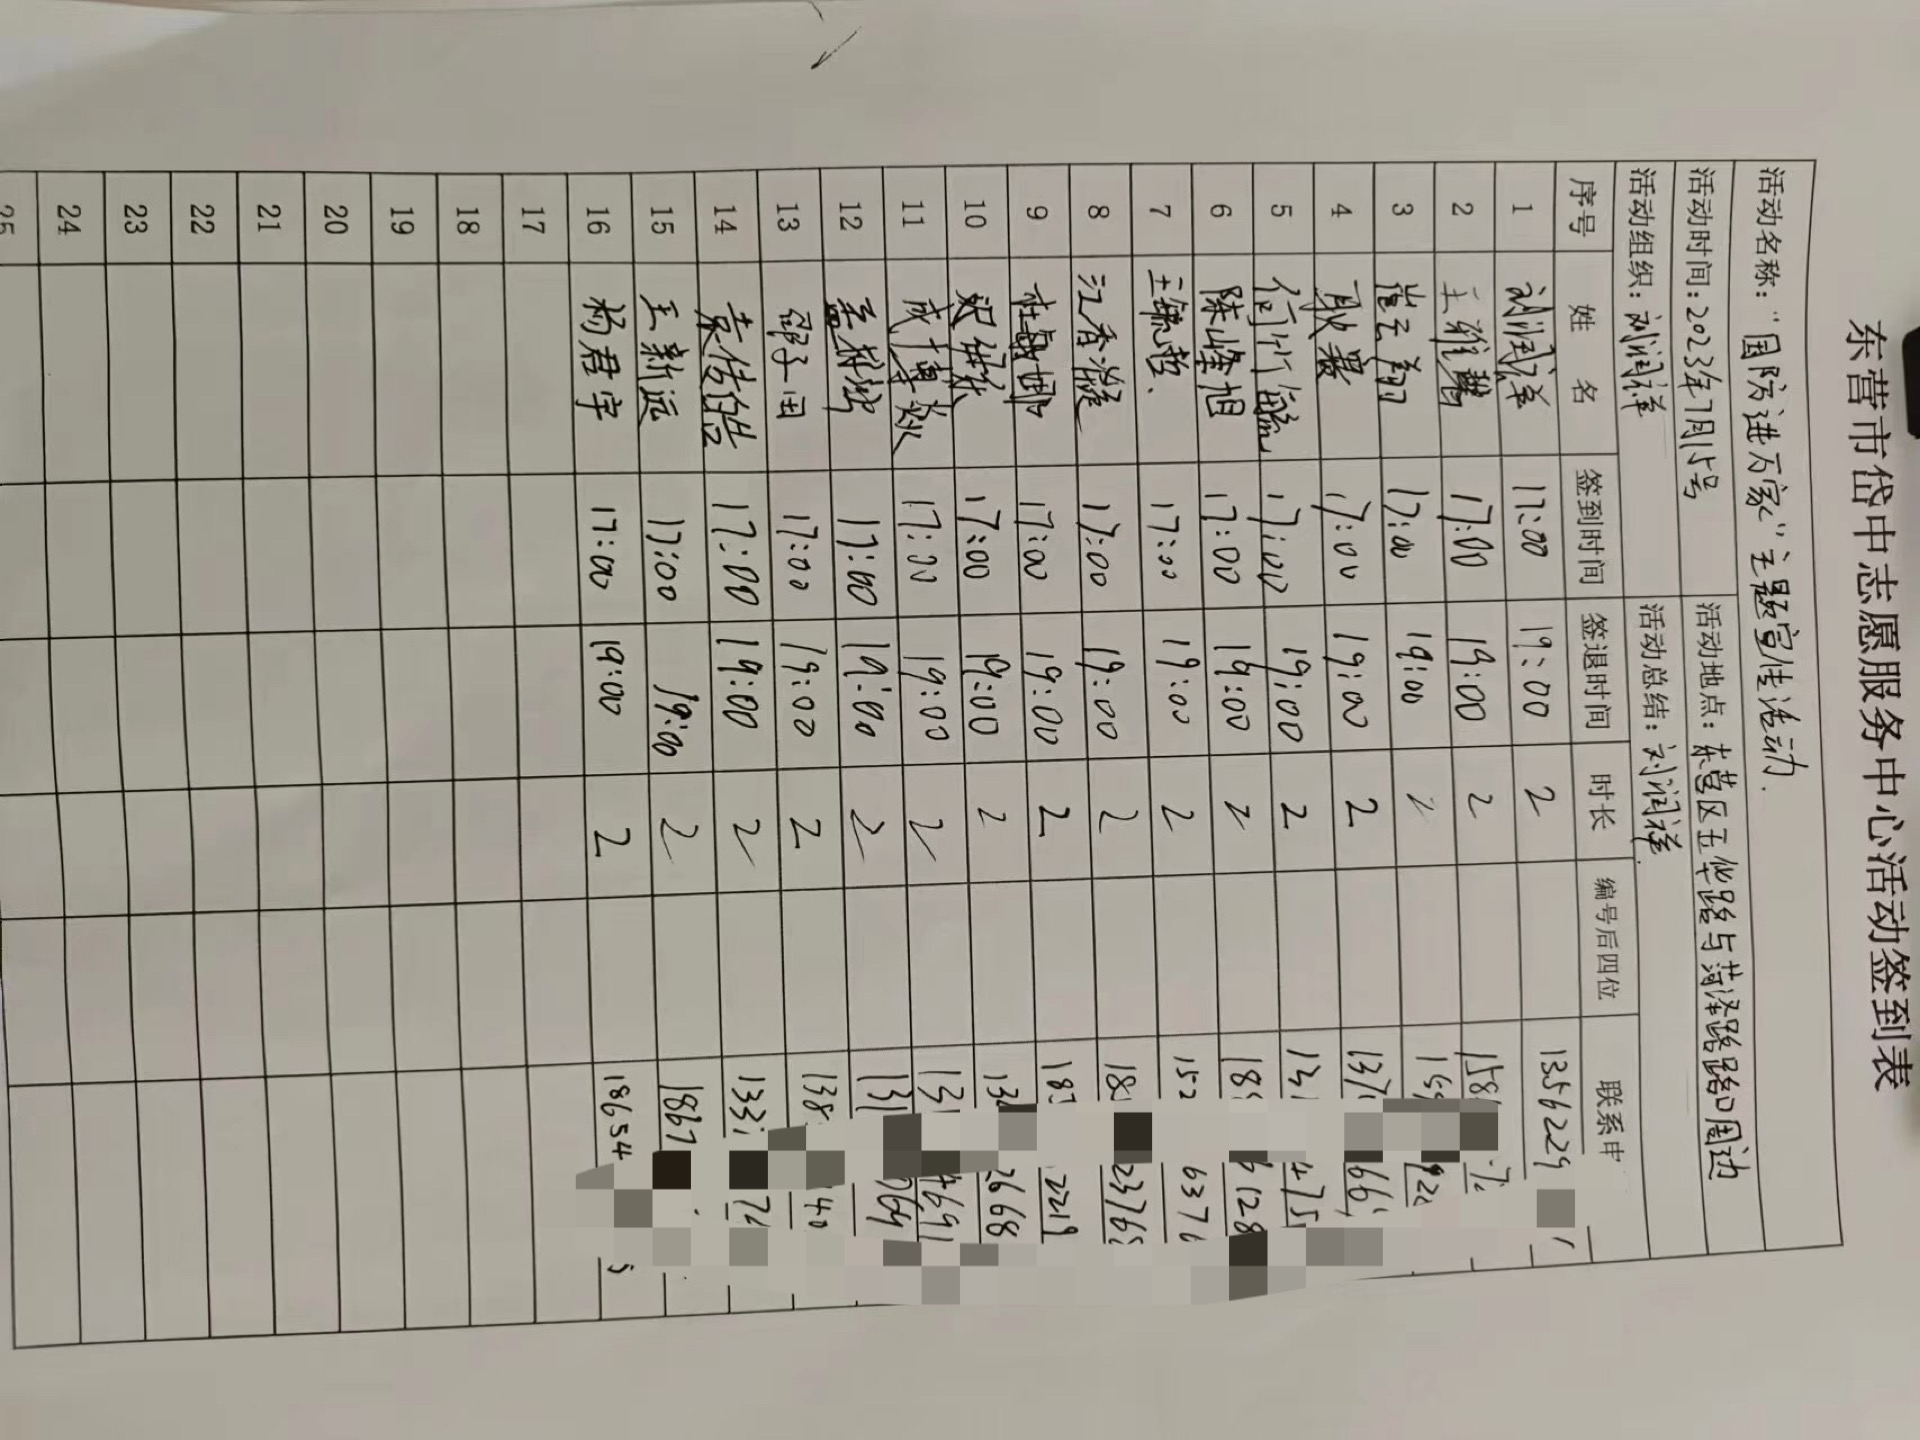 东营市岱中志愿服务中心活动签到表
活动名称:“国防进万家”主题宣传活动.
活动时间:2023年7月15号 活动地点:东营区五华路与菏泽路路口周边
活动组织:刘润祥 活动总结:刘润祥
序号 姓名 签到时间 签退时间 时长 编号后四位 联系
1 刘润祥 17:00 19:00 2 1356229
2 17:00 19:00 2 158
3 崔云翔 17:00 19:00 2
4 耿冕 17:00 19:00 2 137 66
5 17:00 19:00 2 131 475
6 陈峰旭 17:00 19:00 2 18 6128
7 王毓哲. 17:00 19:00 2 152 6376
8 江香凝 17:00 19:00 2 18 2376
9 杜敏娜 17:00 19:00 2 183 2219
10 17:00 19:00 2 13 2668
11 17:00 19:00 2 131 4691
12 17:00 19:00 2 131 769
13 邵子田 17:00 19:00 2 138 40
14 袁传皓 17:00 19:00 2 133 7
15 王新远 17:00 19:00 2 1867
16 杨君宇 17:00 19:00 2 18654 5
17
18
19
20
21
22
23
24
25